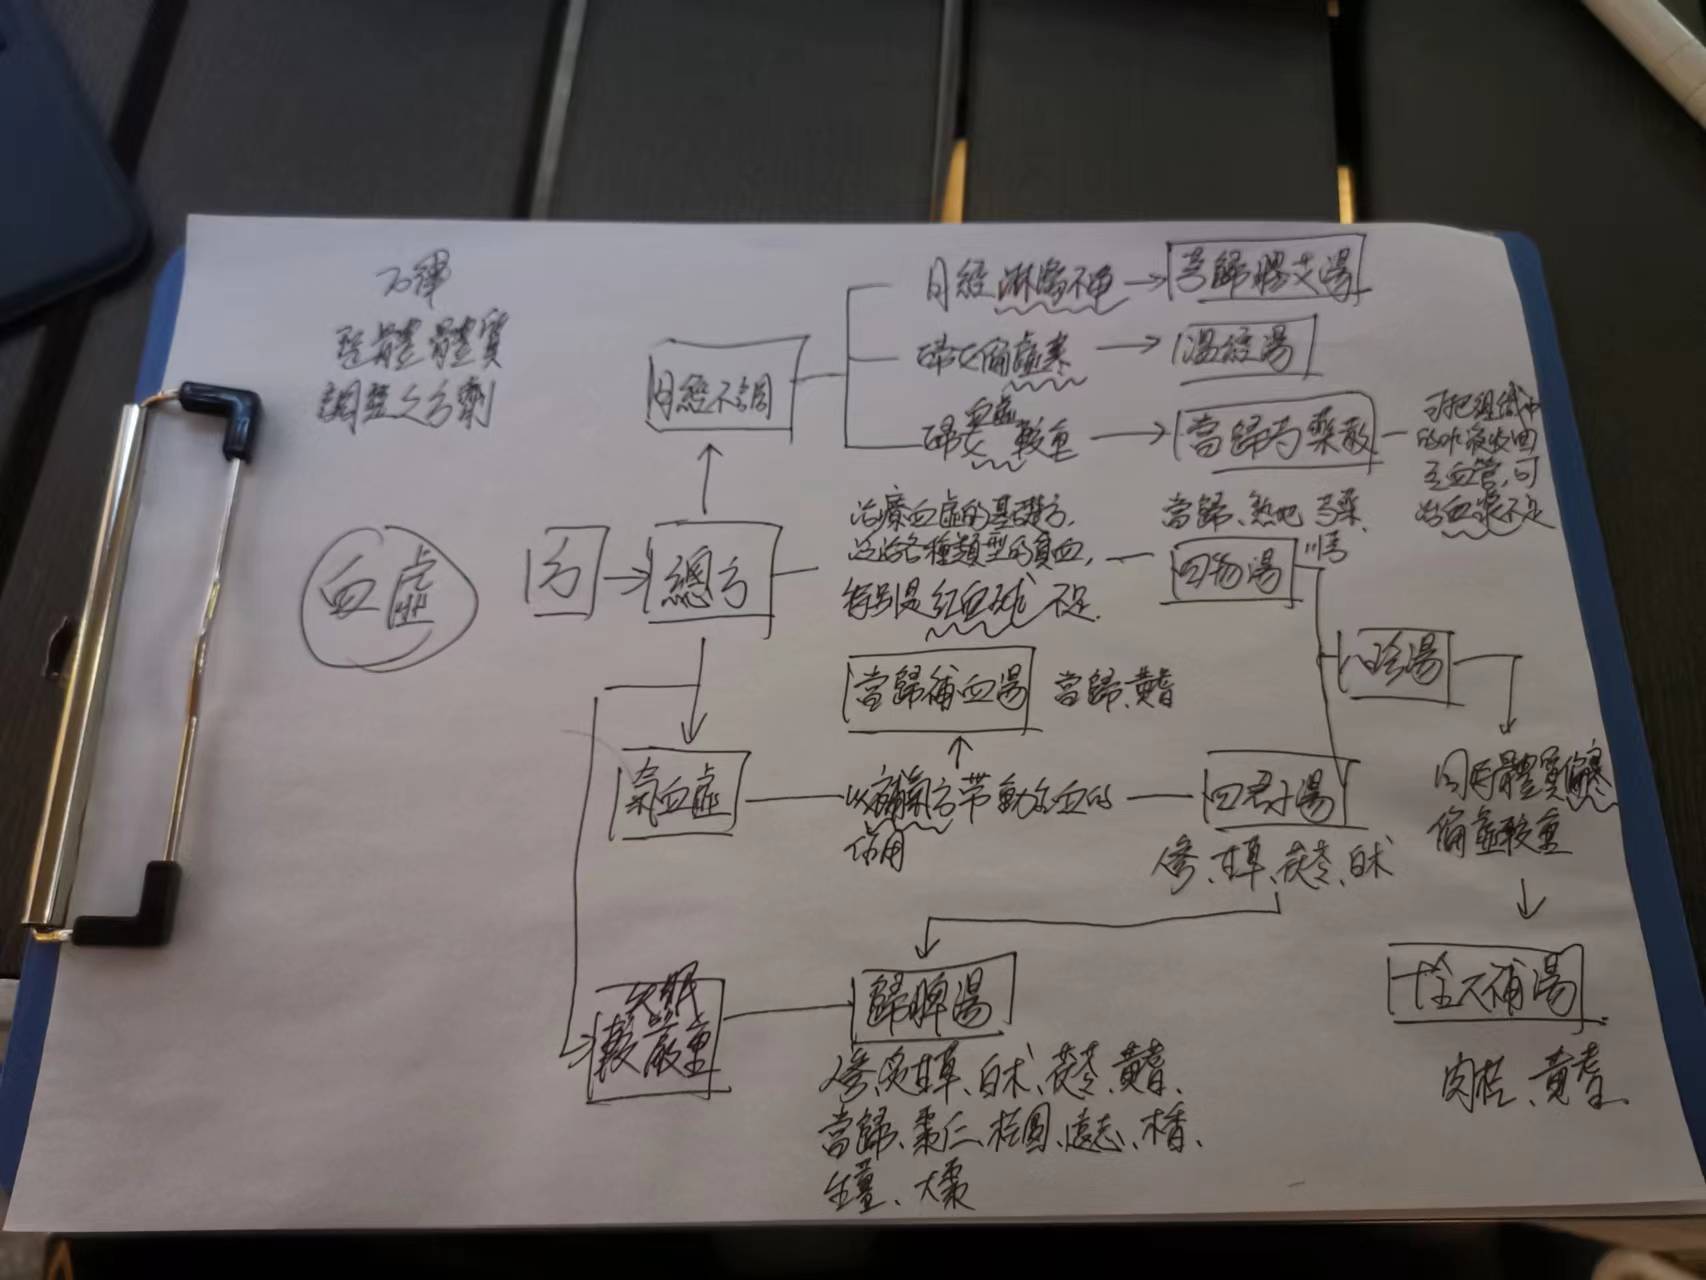 整體體質
調整之方劑
血虛
方
總方
月經不調
月經淋漓不
芎歸膠艾湯
婦女偏虛寒
溫經湯
血虛
婦女較重
當歸芍藥散
可把組織中
的水液收回
至血管,可
治血漿不足
治療血虛的基礎方,
泛治各種類型的貧血,
特別是紅血球不足.
當歸、熟地、芍藥、
川芎
四物湯
八珍湯
當歸補血湯
當歸、黃耆
氣血虛
以補氣方帶動生血的
作用
四君子湯
人參、甘草、茯苓、白朮
同時體質偏寒
偏虛較重
十全大補湯
肉桂、黃耆
失眠
較嚴重
歸脾湯
人參、炙甘草、白朮、茯苓、黃耆、
當歸、棗仁、桂圓、遠志、木香、
生薑、大棗